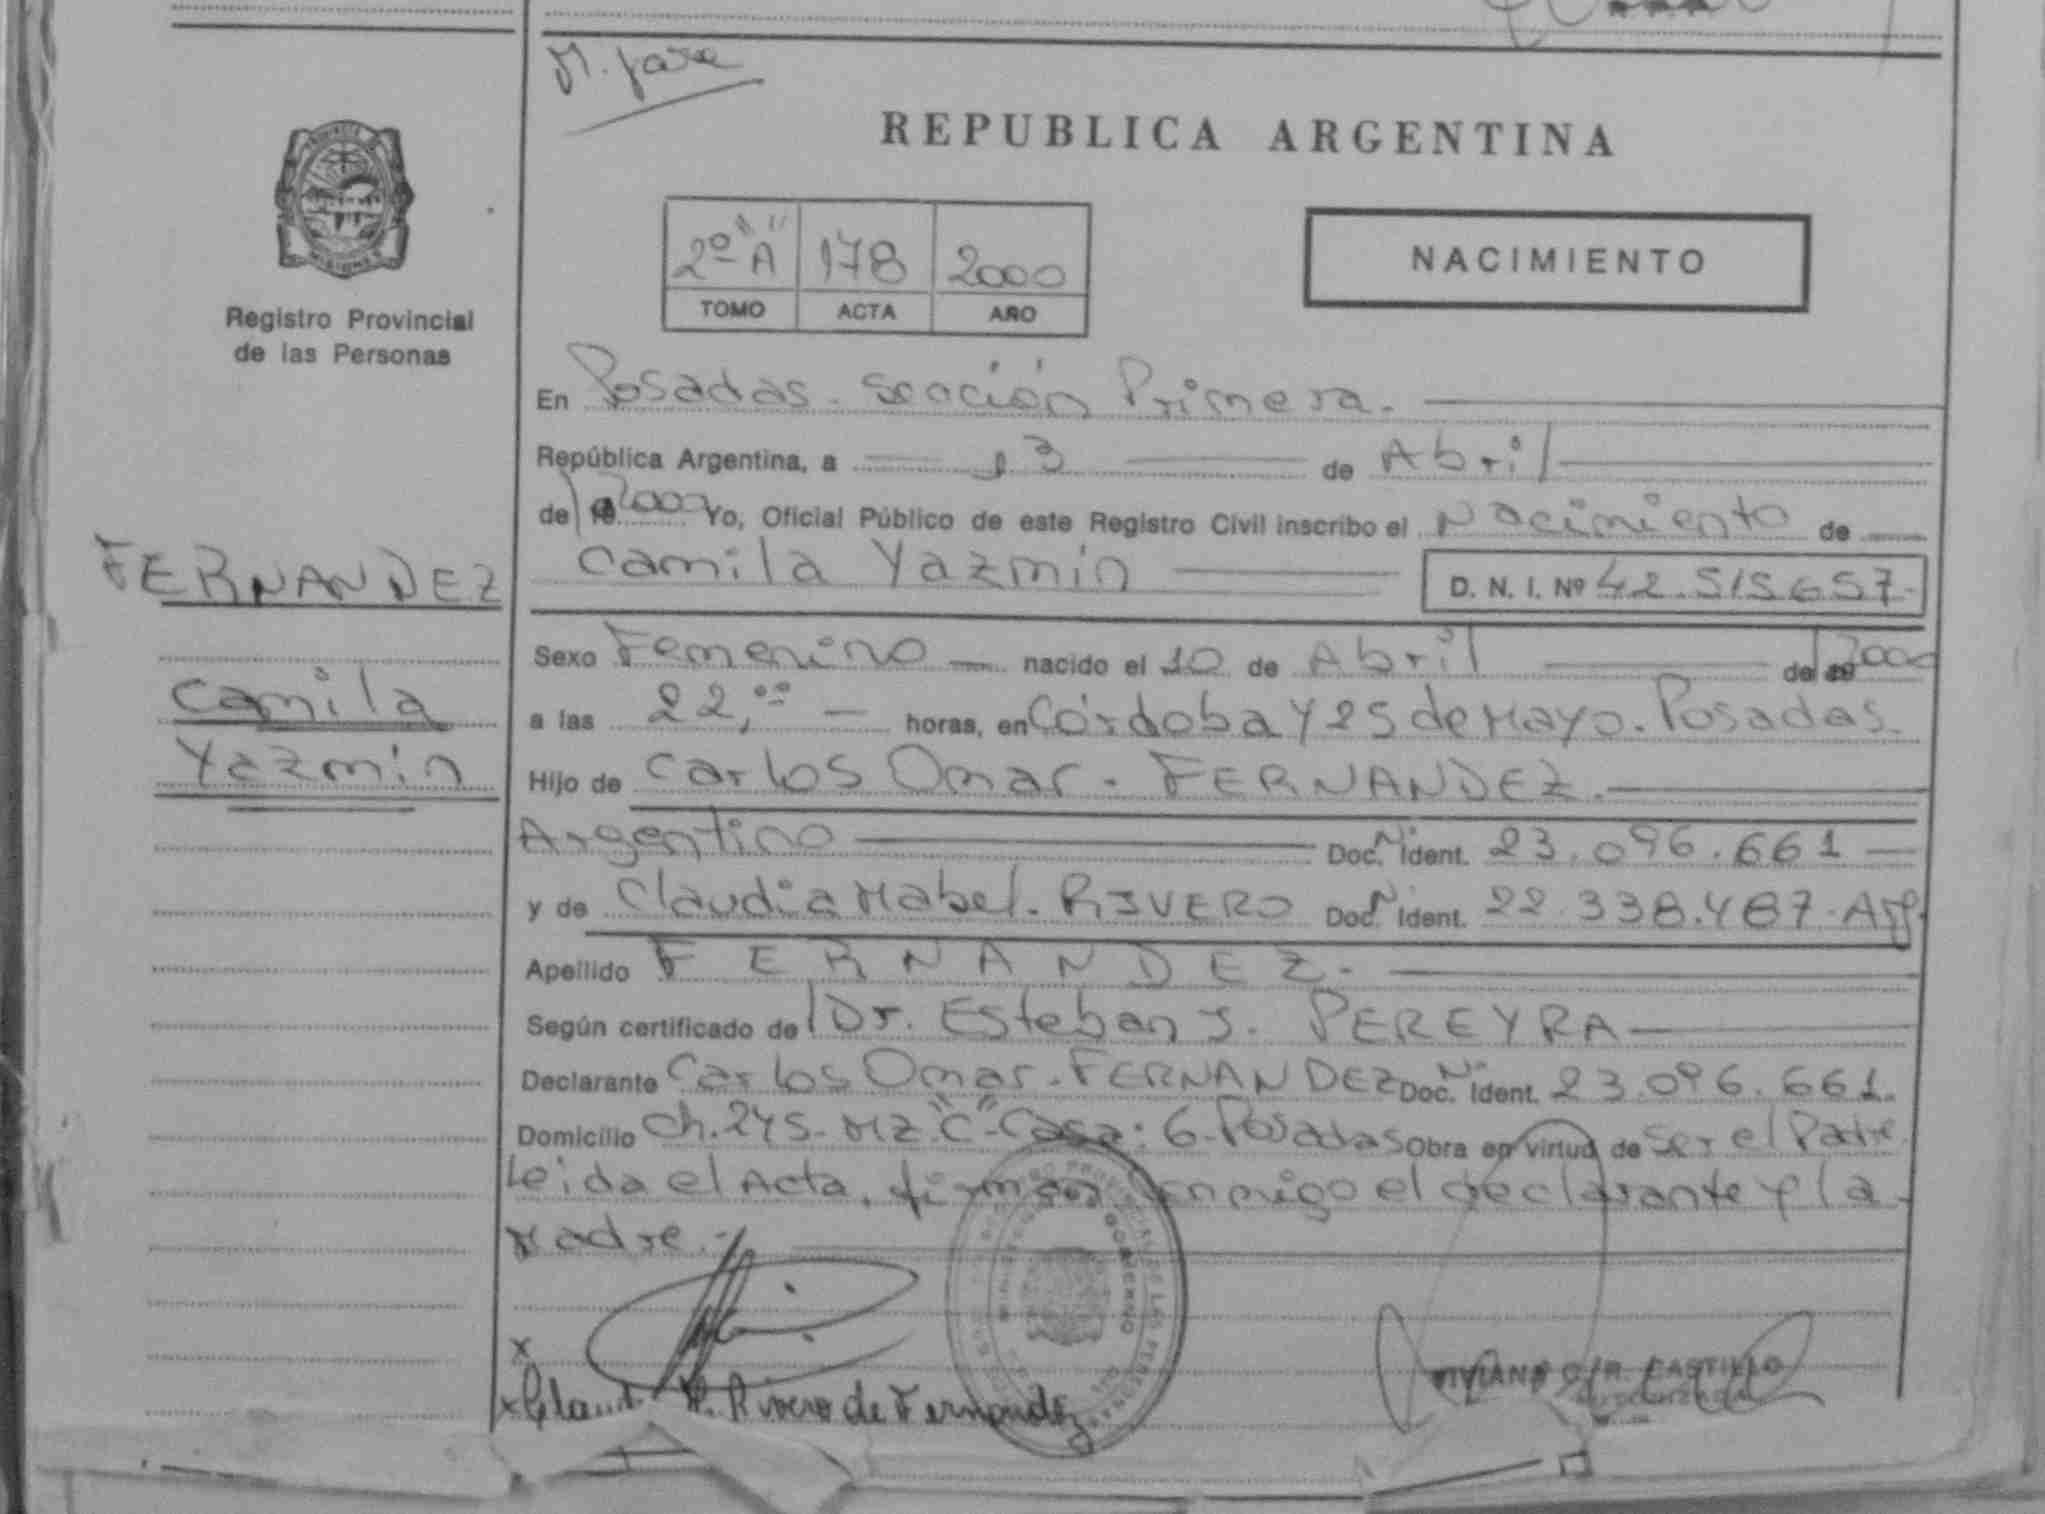 REPUBLICA ARGENTINA
PROVINCIA DE
MISIONES
Registro Provincial
de las Personas
2º "A" 178 2000
TOMO ACTA AÑO
NACIMIENTO
En Posadas. Sección Primera.
República Argentina, a 13 de Abril
de 2000 Yo, Oficial Público de este Registro Civil inscribo el Nacimiento de
FERNANDEZ
Camila
Yazmin
Camila Yazmin D. N. I. Nº 42.515657.
Sexo Femenino nacido el 10 de Abril de 2000
a las 22,ºº horas, en Córdoba y 25 de Mayo. Posadas.
Hijo de Carlos Omar. FERNANDEZ.
Argentino Doc. N. Ident. 23.096.661
y de Claudia Mabel. RIVERO Doc. N. Ident. 22.338.487. Arg.
Apellido FERNANDEZ.
Según certificado de Dr. Esteban J. PEREYRA
Declarante Carlos Omar. FERNANDEZ Doc. N. Ident. 23.096.661.
Domicilio Ch. 245. Mz "C" Casa: 6. Posadas Obra en virtud de Ser el Padre.
Leida el Acta, firman conmigo el declarante y la
Madre.-
x
x Claud. M. Rivero de Fernandez
VIVIANA R. CASTILLO